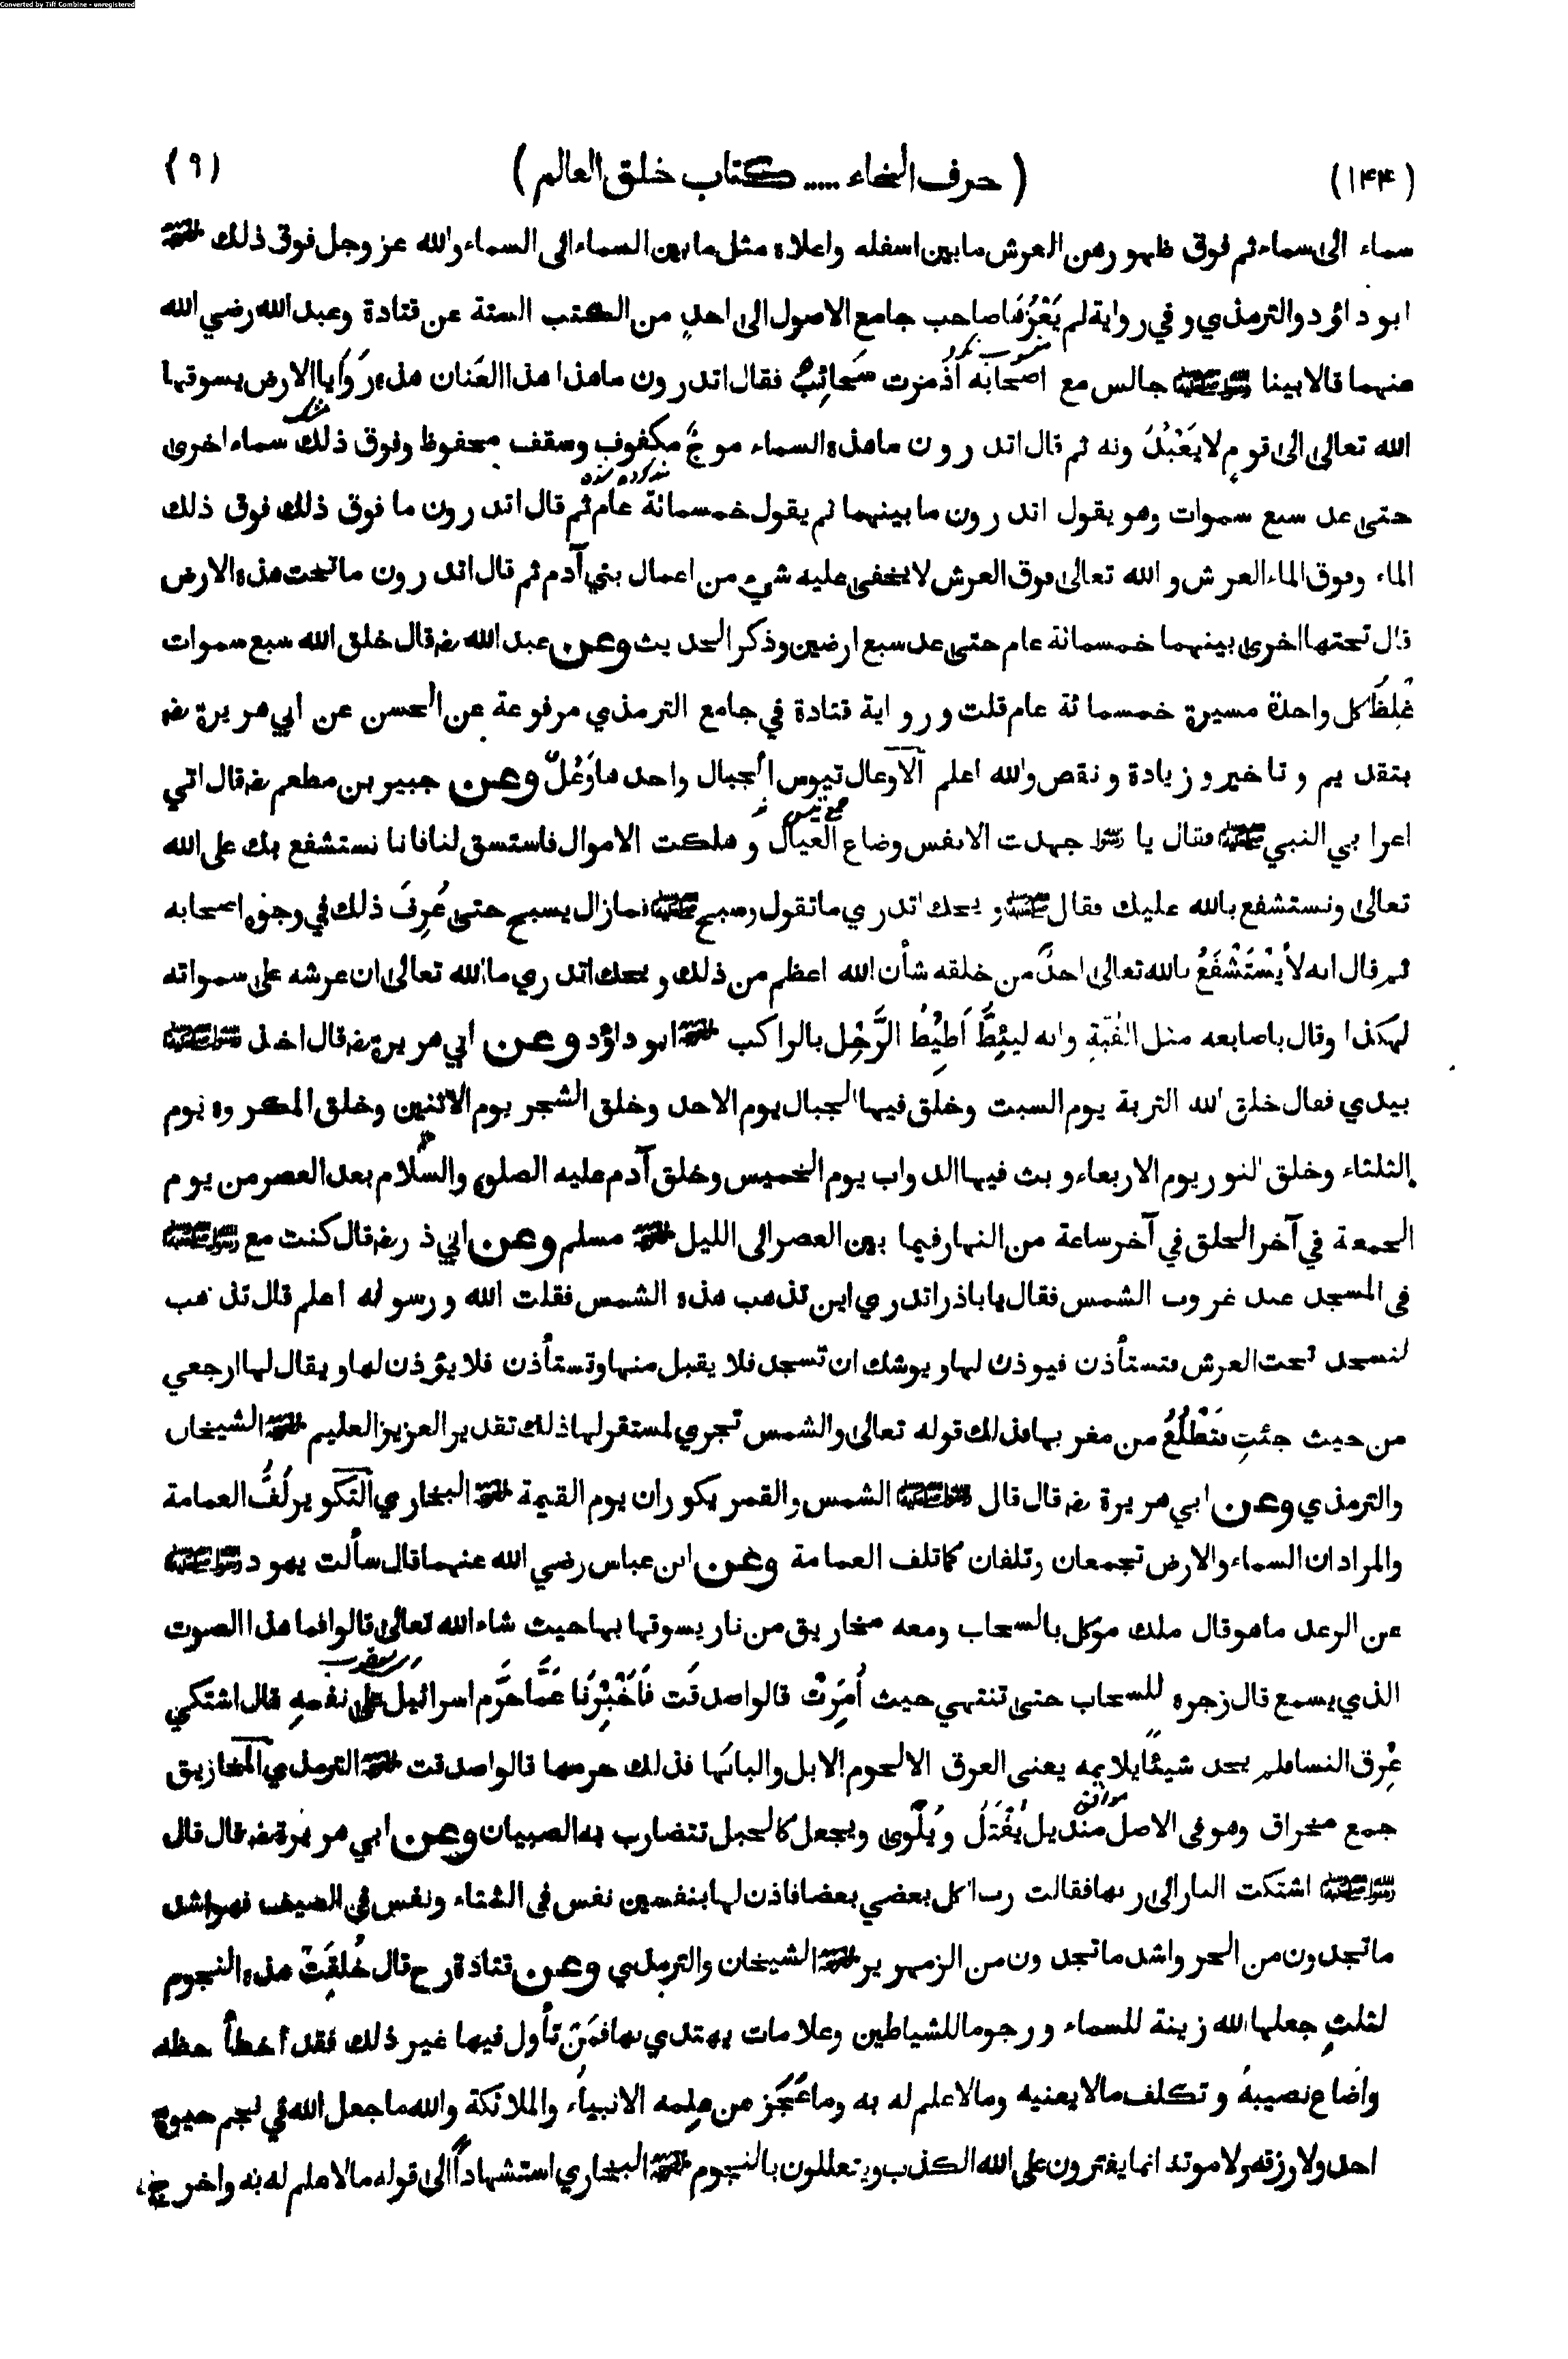 Converted by Tiff Combine - unregistered
(١٤٤) (حرف الخاء ..... كتاب خلق العالم) (٩)
سماء الى سماء ثم فوق ظهورهن العرش ما بين اسفله واعلاه مثل ما بين السماء الى السماء والله عز وجل فوق ذلك
ابو داؤد والترمذي وفي رواية لم يَعْزُهَا صاحب جامع الاصول الى احدٍ من الكتب الستة عن قتادة وعبد الله رضي الله
عنهما قالا بينا رسول الله صلى الله عليه وسلم جالس مع اصحابه اذ مرت سَحَائِبُ فقال اتدرون ما هذا هذا العَنان هذه رَوَايا الارض يسوقها
الله تعالى الى قومٍ لا يَعْبُدُونه ثم قال اتدرون ما هذه السماء موجٌ مكفوف وسقف محفوظ وفوق ذلك سماء اخرى
حتى عد سبع سموات وهو يقول اتدرون ما بينهما ثم يقول خمسمائة عام ثم قال اتدرون ما فوق ذلك فوق ذلك
الماء وفوق الماء العرش والله تعالى فوق العرش لا يخفى عليه شيء من اعمال بني آدم ثم قال اتدرون ما تحت هذه الارض
قال تحتها اخرى بينهما خمسمائة عام حتى عد سبع ارضين وذكر الحديث وعن عبد الله رضہ قال خلق الله سبع سموات
غِلَظُ كل واحدة مسيرة خمسمائة عام قلت ورواية قتادة في جامع الترمذي مرفوعة عن الحسن عن ابي هريرة رضہ
بتقديم وتاخير وزيادة ونقص والله اعلم الاوعال تيوس الجبال واحدها وَعُلٌ وعن جبير بن مطعم رضہ قال اتي
اعرابي النبي صلى الله عليه وسلم فقال يا رسول الله جهدت الانفس وضاع العيال وهلكت الاموال فاستسق لنا فانا نستشفع بك على الله
تعالى ونستشفع بالله عليك فقال صلى الله عليه وسلم ويحك اتدري ما تقول وسبح صلى الله عليه وسلم فما زال يسبح حتى عُرِفَ ذلك في وجوه اصحابه
ثم قال انه لا يُسْتَشْفَعُ بالله تعالى احدٌ من خلقه شأن الله اعظم من ذلك ويحك اتدري ما الله تعالى ان عرشه على سمواته
لهكذا وقال باصابعه مثل القُبّةِ وانه ليئِطُّ اَطِيْطُ الرَّحْلِ بالراكب ابو داؤد وعن ابي هريرة رضہ قال اخذ رسول الله صلى الله عليه وسلم
بيدي فقال خلق الله التربة يوم السبت وخلق فيها الجبال يوم الاحد وخلق الشجر يوم الاثنين وخلق المكروه يوم
الثلثاء وخلق النور يوم الاربعاء وبث فيها الدواب يوم الخميس وخلق آدم عليه الصلوة والسلام بعد العصر من يوم
الجمعة في آخر الخلق في آخر ساعة من النهار فيما بين العصر الى الليل مسلم وعن ابي ذر رضہ قال كنت مع رسول الله صلى الله عليه وسلم
فى المسجد عند غروب الشمس فقال يا باذر اتدري اين تذهب هذه الشمس فقلت الله ورسوله اعلم قال تذهب
لتسجد تحت العرش فتستأذن فيوذن لها ويوشك ان تسجد فلا يقبل منها وتستأذن فلا يؤذن لها ويقال لها ارجعي
من حيث جئتِ فتَطْلُعُ من مغربها فذلك قوله تعالى والشمس تجري لمستقر لها ذلك تقدير العزيز العليم الشيخان
والترمذي وعن ابي هريرة رضہ قال قال رسول الله صلى الله عليه وسلم الشمس والقمر يكوران يوم القيمة البخاري التكوير لَفُّ العمامة
والمراد ان السماء والارض تجمعان وتلفان كما تلف العمامة وعن ابن عباس رضي الله عنهما قال سألت يهود رسول الله صلى الله عليه وسلم
عن الرعد ما هو قال ملك موكل بالسحاب ومعه مخاريق من نار يسوقها بها حيث شاء الله تعالى قالوا فما هذا الصوت
الذي يسمع قال زجره للسحاب حتى تنتهي حيث اُمِرَتْ قالوا صدقت فَاَخْبِرْنَا عَمَّا حَرَّم اسرائيل على نفسهِ قال اشتكي
عِرق النسا فلم يجد شيئًا يلايمه يعنى العرق الا لحوم الابل والبانها فذلك حرمها قالوا صدقت الترمذي المخاريق
جمع مخراق وهو فى الاصل منديل يُفْتَلُ ويُلْوى ويجعل كالحبل تتضارب به الصبيان وعن ابي هريرة رضہ قال قال
رسول الله صلى الله عليه وسلم اشتكت النار الى ربها فقالت رب اكل بعضي بعضا فاذن لها بنفسين نفس فى الشتاء ونفس فى الصيف فهو اشد
ما تجدون من الحر واشد ما تجدون من الزمهرير الشيخان والترمذي وعن قتادة رح قال خُلقِتْ هذه النجوم
لثلثٍ جعلها الله زينة للسماء ورجوما للشياطين وعلامات يهتدي بها فمَنْ تأول فيها غير ذلك فقد أخطأ حظه
واضاع نصيبهُ وتكلف مالا يعنيه ومالا علم له به وما عَجَز من علمه الانبياء والملائكة والله ما جعل الله في نجم حيوة
احد ولا رزقه ولا موته انما يفترون على الله الكذب ويتعللون بالنجوم البخاري استشهاداً الى قوله مالا علم له به واخرج